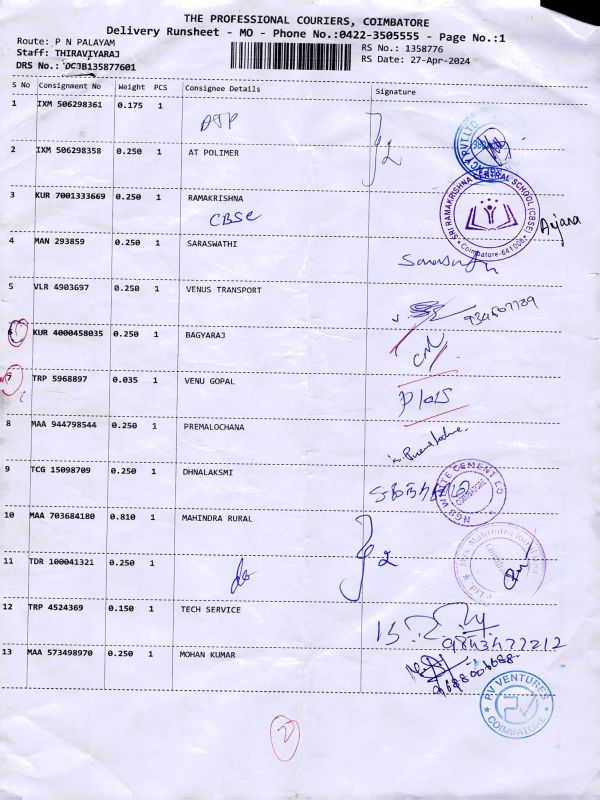 THE PROFESSIONAL COURIERS, COIMBATORE
Delivery Runsheet - MO - Phone No.:0422-3505555 - Page No.:1
Route: P N PALAYAM
RS No.: 1358776
Staff: THIRAVIYARAJ
RS Date: 27-Apr-2024
DRS No.: DCJB135877601
S No Consignment No Weight PCS Consignee Details Signature
1 IXM 506298361 0.175 1
2 IXM 506298358 0.250 1 AT POLIMER 2
3 KUR 7001333669 0.250 1 RAMAKRISHNA
CBSE
SRI RAMAKRISHNA CENTRAL SCHOOL (CBSE)
Coimbatore-641006
Anjana
4 MAN 293859 0.250 1 SARASWATHI
5 VLR 4903697 0.250 1 VENUS TRANSPORT
6 KUR 4000458035 0.250 1 BAGYARAJ
7 TRP 5968897 0.035 1 VENU GOPAL
8 MAA 944798544 0.250 1 PREMALOCHANA
9 TCG 15098709 0.250 1 DHNALAKSMI
10 MAA 703684180 0.810 1 MAHINDRA RURAL
11 TDR 100041321 0.250 1 do 2
12 TRP 4524369 0.150 1 TECH SERVICE
9843477212
13 MAA 573498970 0.250 1 MOHAN KUMAR
P.V VENTURES
PV
COIMBATORE
2